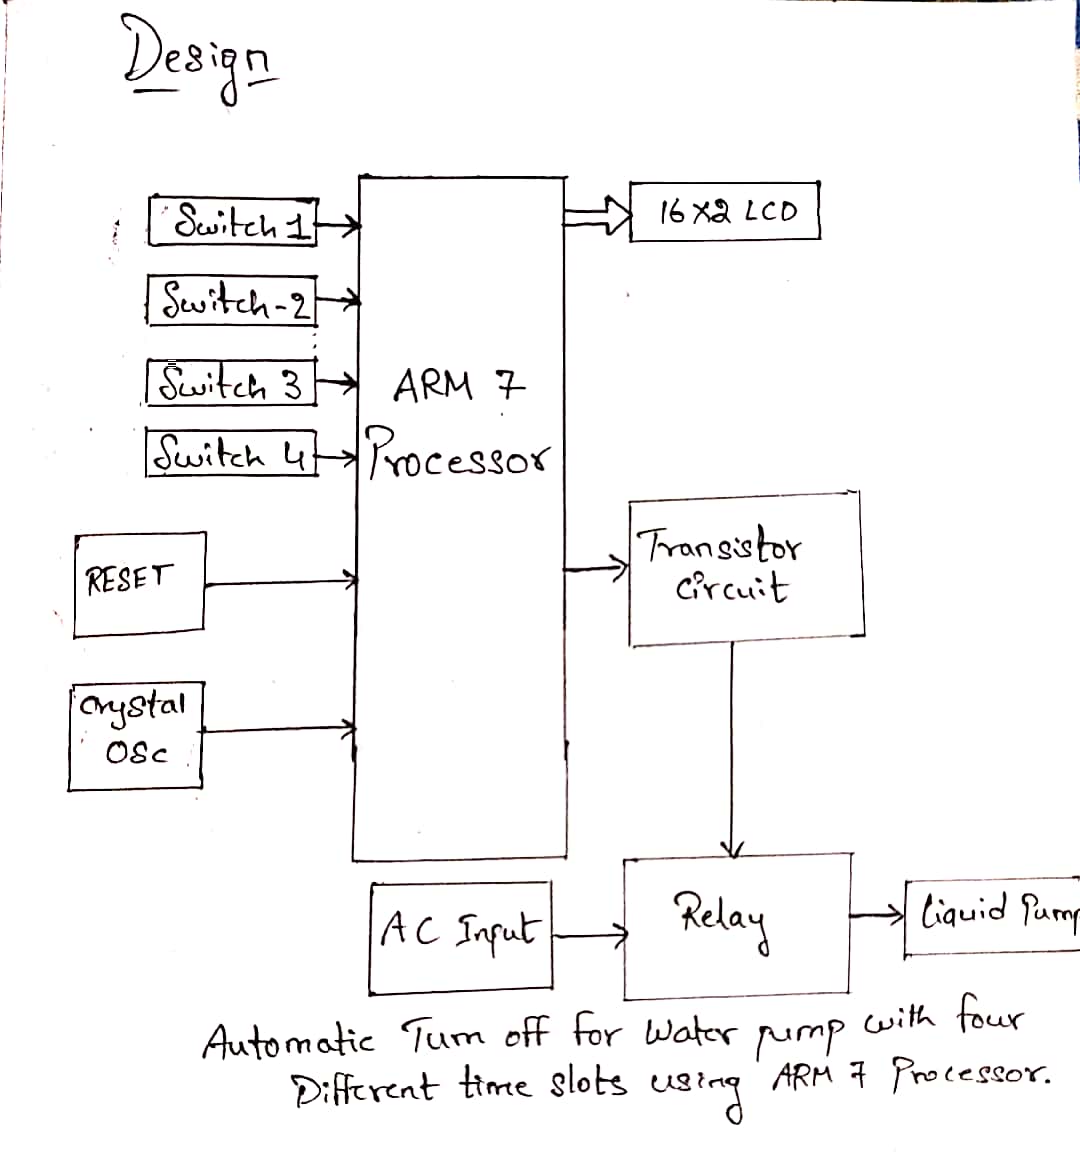 Design
Switch 1
16X2 LCD
Switch-2
Switch 3
Switch 4
ARM 7
Processor
RESET
Transistor
Circuit
Crystal
OSC
AC Input
Relay
Liquid Pump
Automatic Turn off for Water pump with four
Different time slots using ARM 7 Processor.